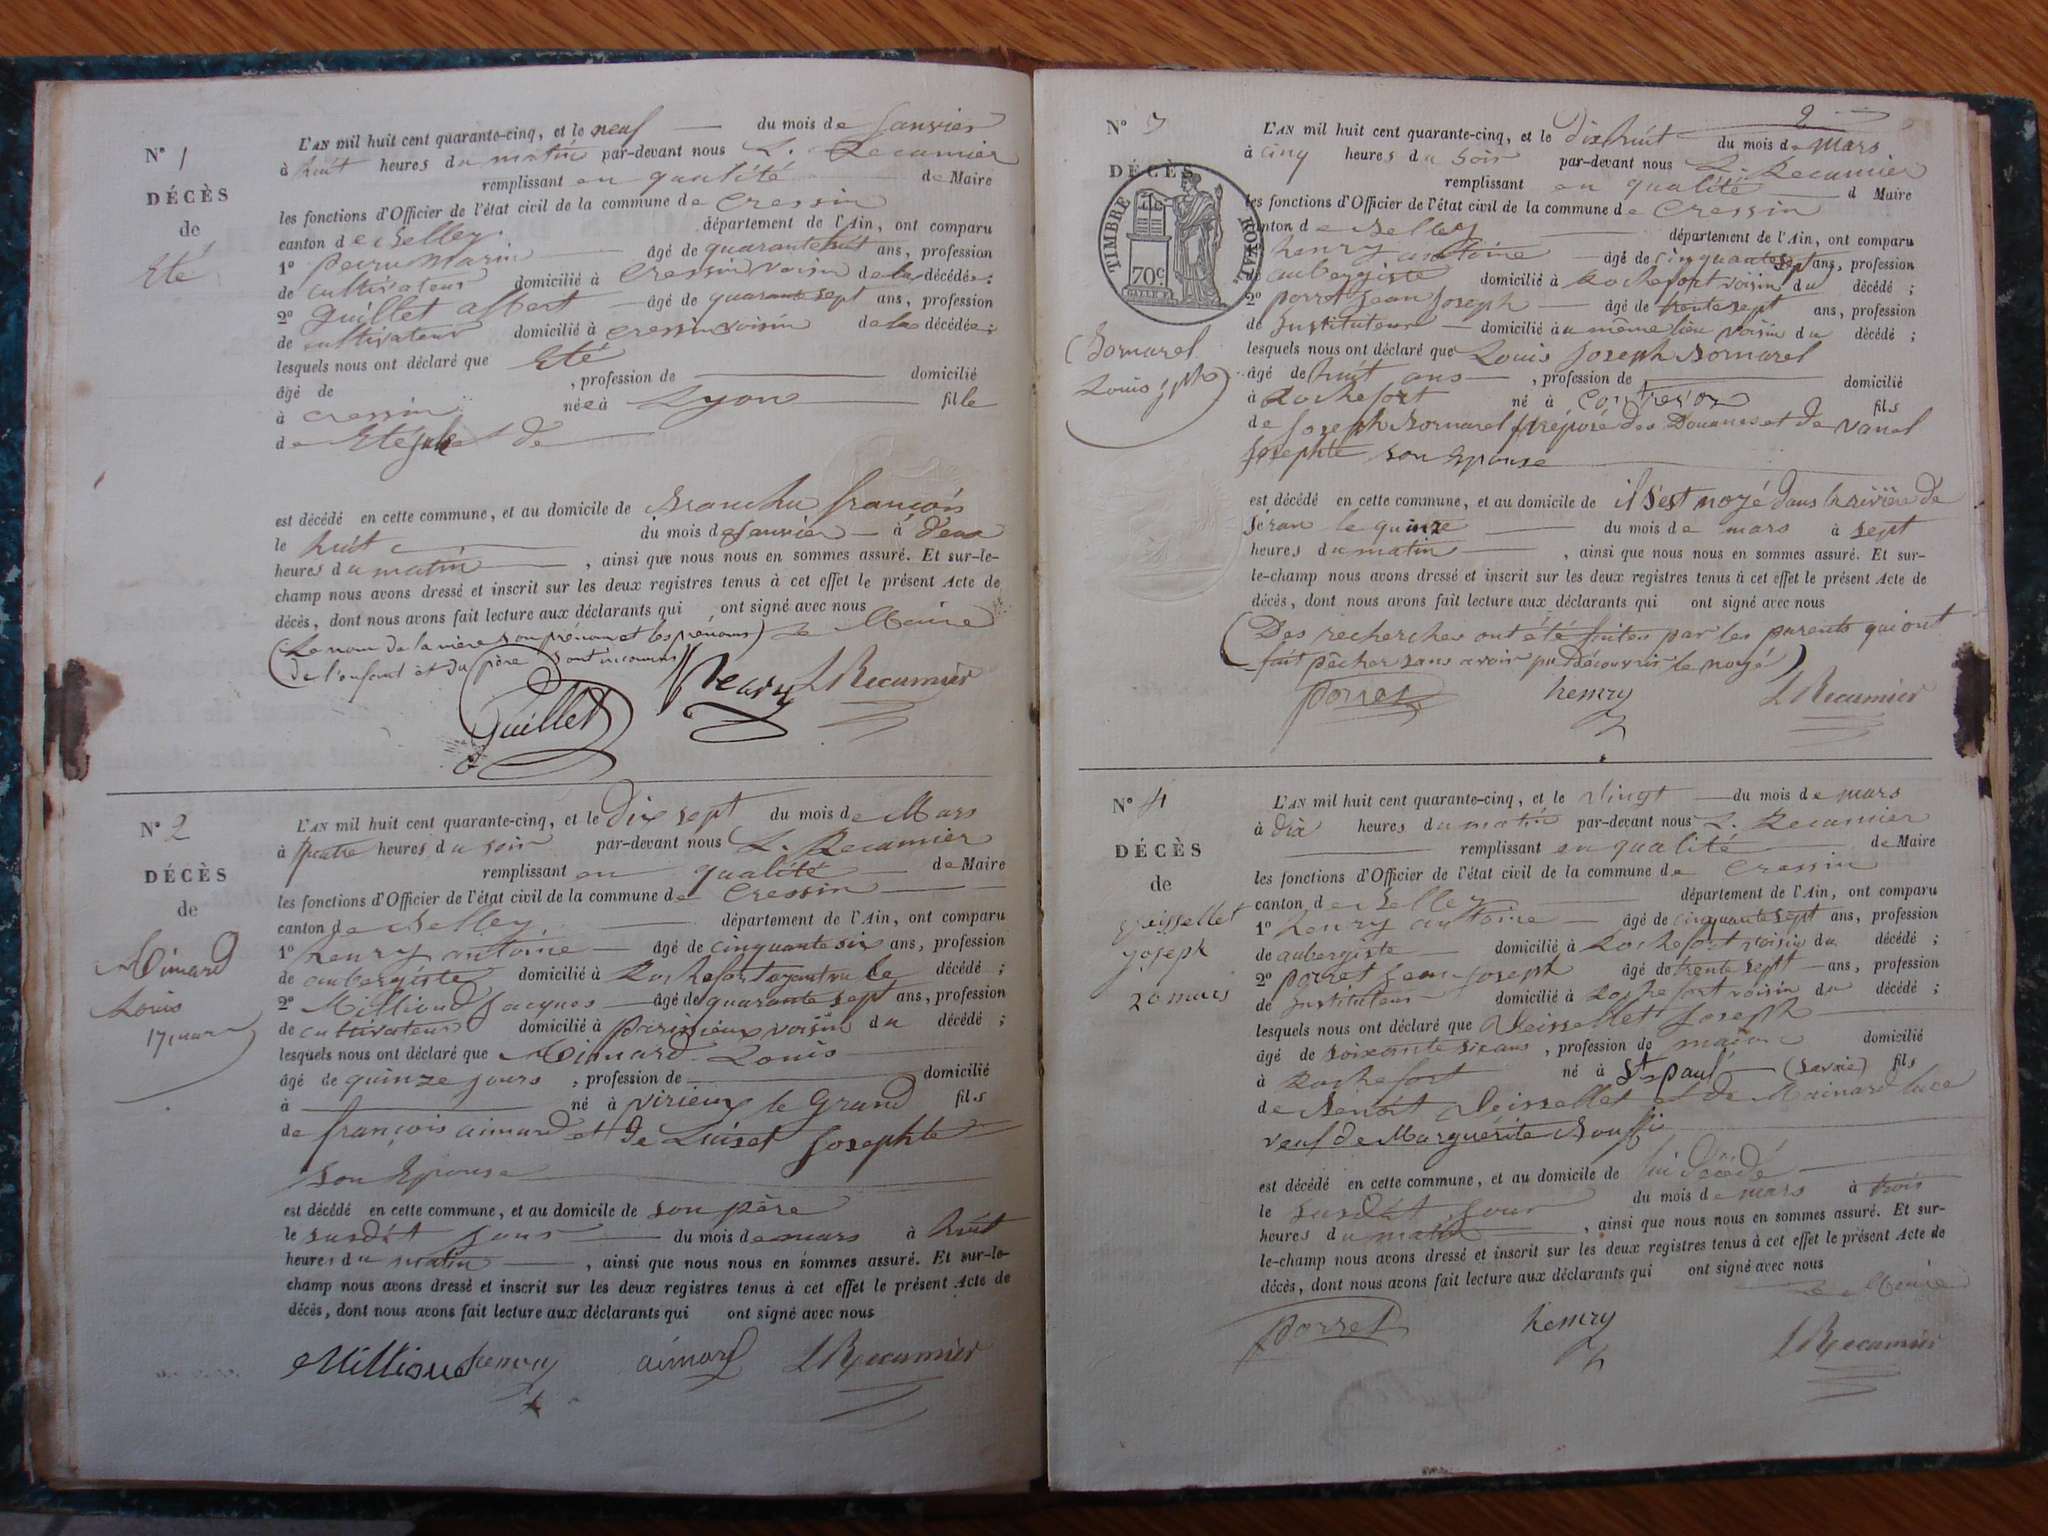 N° 1
DÉCÈS
de
Eté
L'AN mil huit cent quarante-cinq, et le neuf du mois de Janvier
à huit heures du matin par-devant nous L. Recamier
remplissant en qualité de Maire
les fonctions d'Officier de l'état civil de la commune de Cressin
canton de Belley département de l'Ain, ont comparu
1° Marin âgé de quarante huit ans, profession
de cultivateur domicilié à Cressin voisin de la décédée;
2° Guillet albert âgé de quarante sept ans, profession
de cultivateur domicilié à Cressin voisin de la décédée;
lesquels nous ont déclaré que Eté
âgé de , profession de domicilié
à Cressin née à Lyon fille
de Eté et de
est décédé en cette commune, et au domicile de françois
le huit du mois de Janvier à deux
heures du matin , ainsi que nous nous en sommes assuré. Et sur-le-
champ nous avons dressé et inscrit sur les deux registres tenus à cet effet le présent Acte de
décès, dont nous avons fait lecture aux déclarants qui ont signé avec nous
(Le nom de la mère son prénom et les prénoms) Le Maire
de l'enfant et du père sont inconnus
Guillet LRecamier
N° 2
DÉCÈS
de
Aimard
Louis
17 mars
L'AN mil huit cent quarante-cinq, et le Dix sept du mois de Mars
à quatre heures du soir par-devant nous L. Recamier
remplissant en qualité de Maire
les fonctions d'Officier de l'état civil de la commune de Cressin
canton de Belley département de l'Ain, ont comparu
1° henry antoine âgé de cinquante six ans, profession
de aubergiste domicilié à Rochefort ayant vu le décédé;
2° Millioud Jacques âgé de quarante sept ans, profession
de cultivateur domicilié à parissieux voisin du décédé;
lesquels nous ont déclaré que Aimard Louis
âgé de quinze jours , profession de domicilié
à né à virieux le Grand fils
de françois aimard et de Luiset Josephte
son Epouse
est décédé en cette commune, et au domicile de son père
le susdit jour du mois de mars à huit
heures du matin , ainsi que nous nous en sommes assuré. Et sur-le-
champ nous avons dressé et inscrit sur les deux registres tenus à cet effet le présent Acte de
décès, dont nous avons fait lecture aux déclarants qui ont signé avec nous
Millioud henry aimard LRecamier
2
N° 3
DÉCÈS
TIMBRE ROYAL
70c
Bornarel
Louis jph
L'AN mil huit cent quarante-cinq, et le dix huit du mois de Mars
à cinq heures du soir par-devant nous L. Recamier
remplissant en qualité d Maire
les fonctions d'Officier de l'état civil de la commune de Cressin
canton de Belley département de l'Ain, ont comparu
henry antoine âgé de cinquante sept ans, profession
de aubergiste domicilié à Rochefort voisin du décédé;
2° porret Jean Joseph âgé de trente sept ans, profession
de Instituteur domicilié au même lieu voisin du décédé;
lesquels nous ont déclaré que Louis Joseph Bornarel
âgé de huit ans , profession de domicilié
à Rochefort né à fils
de Joseph Bornarel préposé des Douanes et de vanel
Josephte son Epouse
est décédé en cette commune, et au domicile de il s'est noyé dans la rivière de
Séran le quinze du mois de mars à sept
heures du matin , ainsi que nous nous en sommes assuré. Et sur-
le-champ nous avons dressé et inscrit sur les deux registres tenus à cet effet le présent Acte de
décès, dont nous avons fait lecture aux déclarants qui ont signé avec nous
(Des recherches ont été faites par les parents qui ont
fait pêcher sans avoir pu Découvrir le noyé)
porret henry LRecamier
N° 4
DÉCÈS
de
Veissellet
joseph
20 mars
L'AN mil huit cent quarante-cinq, et le Vingt du mois de mars
à dix heures du matin par-devant nous L. Recamier
remplissant en qualité de Maire
les fonctions d'Officier de l'état civil de la commune de Cressin
canton de Belley département de l'Ain, ont comparu
1° henry antoine âgé de cinquante sept ans, profession
de aubergiste domicilié à Rochefort voisin du décédé;
2° porret Jean Joseph âgé de trente sept ans, profession
de Instituteur domicilié à Rochefort voisin du décédé;
lesquels nous ont déclaré que Veissellet Joseph
âgé de soixante six ans , profession de maçon domicilié
à Rochefort né à St paul (Savoie) fils
de Benoit Veissellet et de Mainard luce
veuf de Marguerite
est décédé en cette commune, et au domicile de lui décédé
le susdit jour du mois de mars à trois
heures du matin , ainsi que nous nous en sommes assuré. Et sur-
le-champ nous avons dressé et inscrit sur les deux registres tenus à cet effet le présent Acte de
décès, dont nous avons fait lecture aux déclarants qui ont signé avec nous
Le Maire
porret henry LRecamier